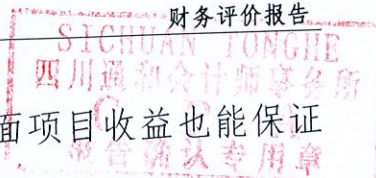 财务评价报告
SICHUAN TONGHE
四川通和会计师事务所
面项目收益也能保证
报告确认专用章